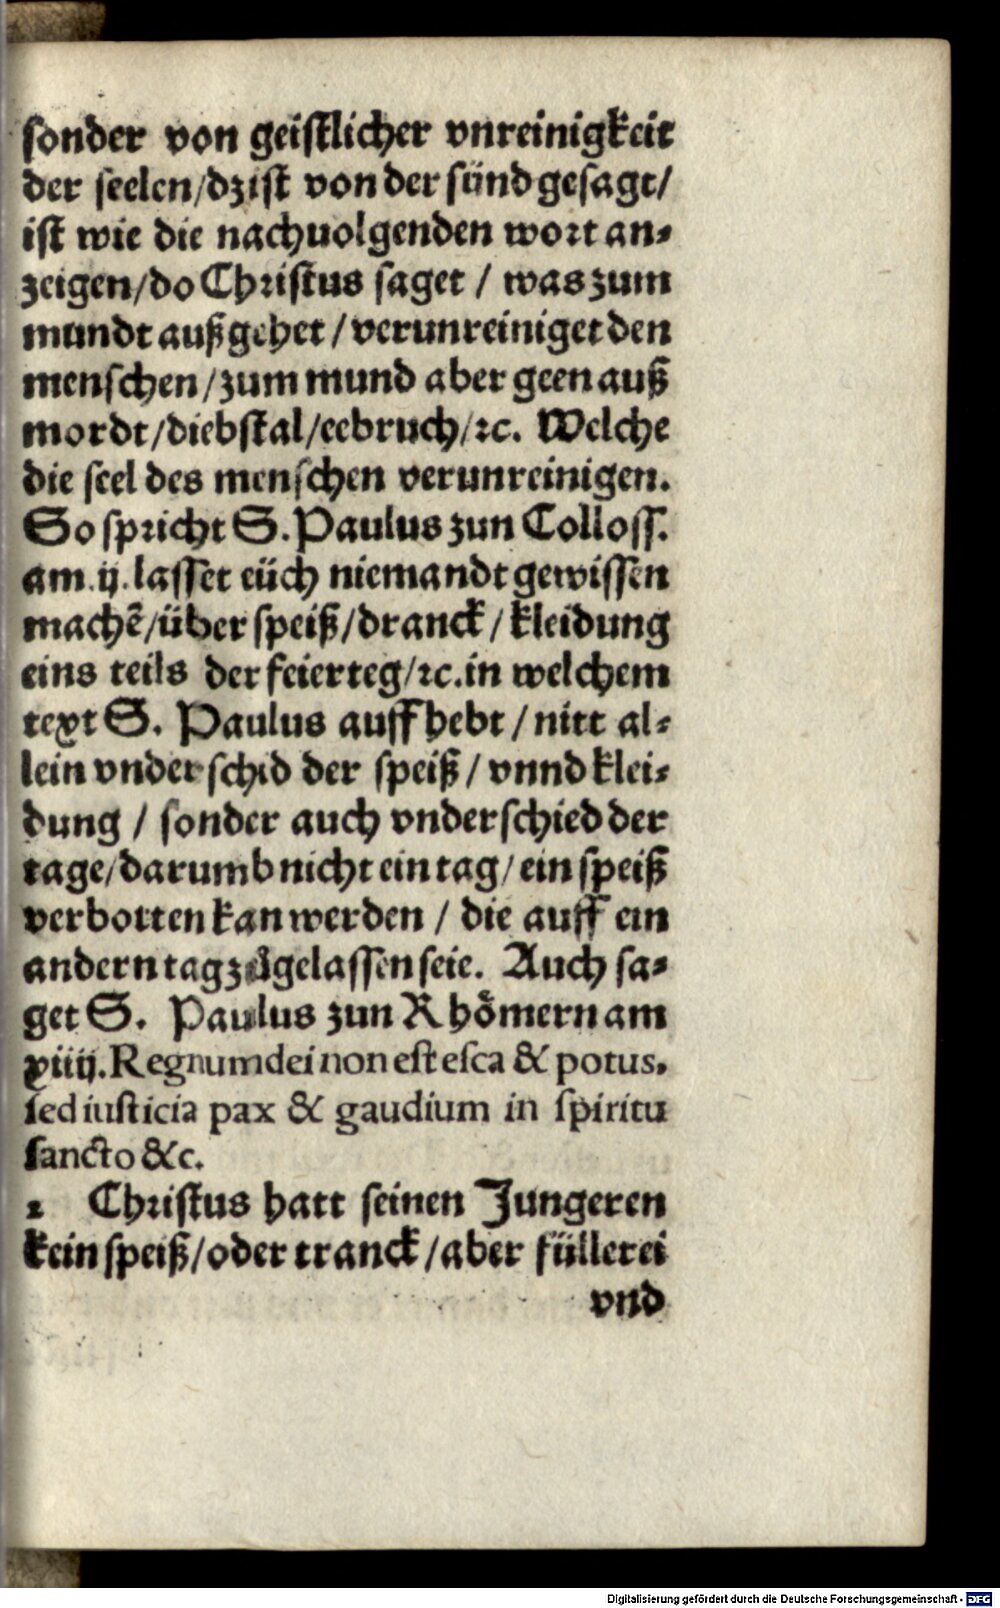 sonder von geistlicher vnreinigkeit
der seelen/dz ist von der sünd gesagt/
ist wie die nachuolgenden wort an⸗
zeigen/do Christus saget / was zum
mundt außgehet / verunreiniget den
menschen / zum mund aber geen auß
mordt/diebstal/eebruch/ꝛc. Welche
die seel des menschen verunreinigen.
So spricht S. Paulus zun Colloss.
am .ij. lasset eüch niemandt gewissen
machẽ/über speiß/dranck / kleidung
eins teils der feierteg/ꝛc. in welchem
text S. Paulus auffhebt / nitt al⸗
lein vnderschid der speiß / vnnd klei⸗
dung / sonder auch vnderschied der
tage/darumb nicht ein tag/ ein speiß
verbotten kan werden / die auff ein
andern tag zůgelassen seie. Auch sa⸗
get S. Paulus zun Rhömern am
xiiij. Regnum dei non est esca & potus,
sed iusticia pax & gaudium in spiritu
sancto &c.
2 Christus hatt seinen Jungeren
kein speiß/oder tranck / aber füllerei
vnd
Digitalisierung gefördert durch die Deutsche Forschungsgemeinschaft - DFG